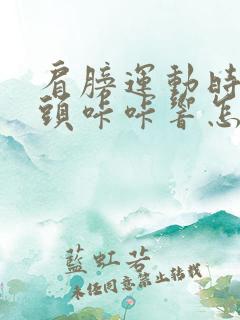 肩膀運動時
頭咔咔響怎
藍虹若
未任同意禁止轉載